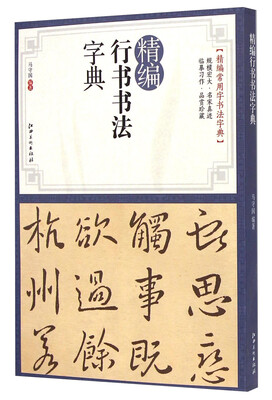 精编
行书书法
字典
【精编常用字书法字典】
规模宏大·名家真迹
临摹习作·品赏珍藏
江西美术出版社
思恋
觸事既
欲過餘
杭州若
精编行书书法字典
江西美术出版社